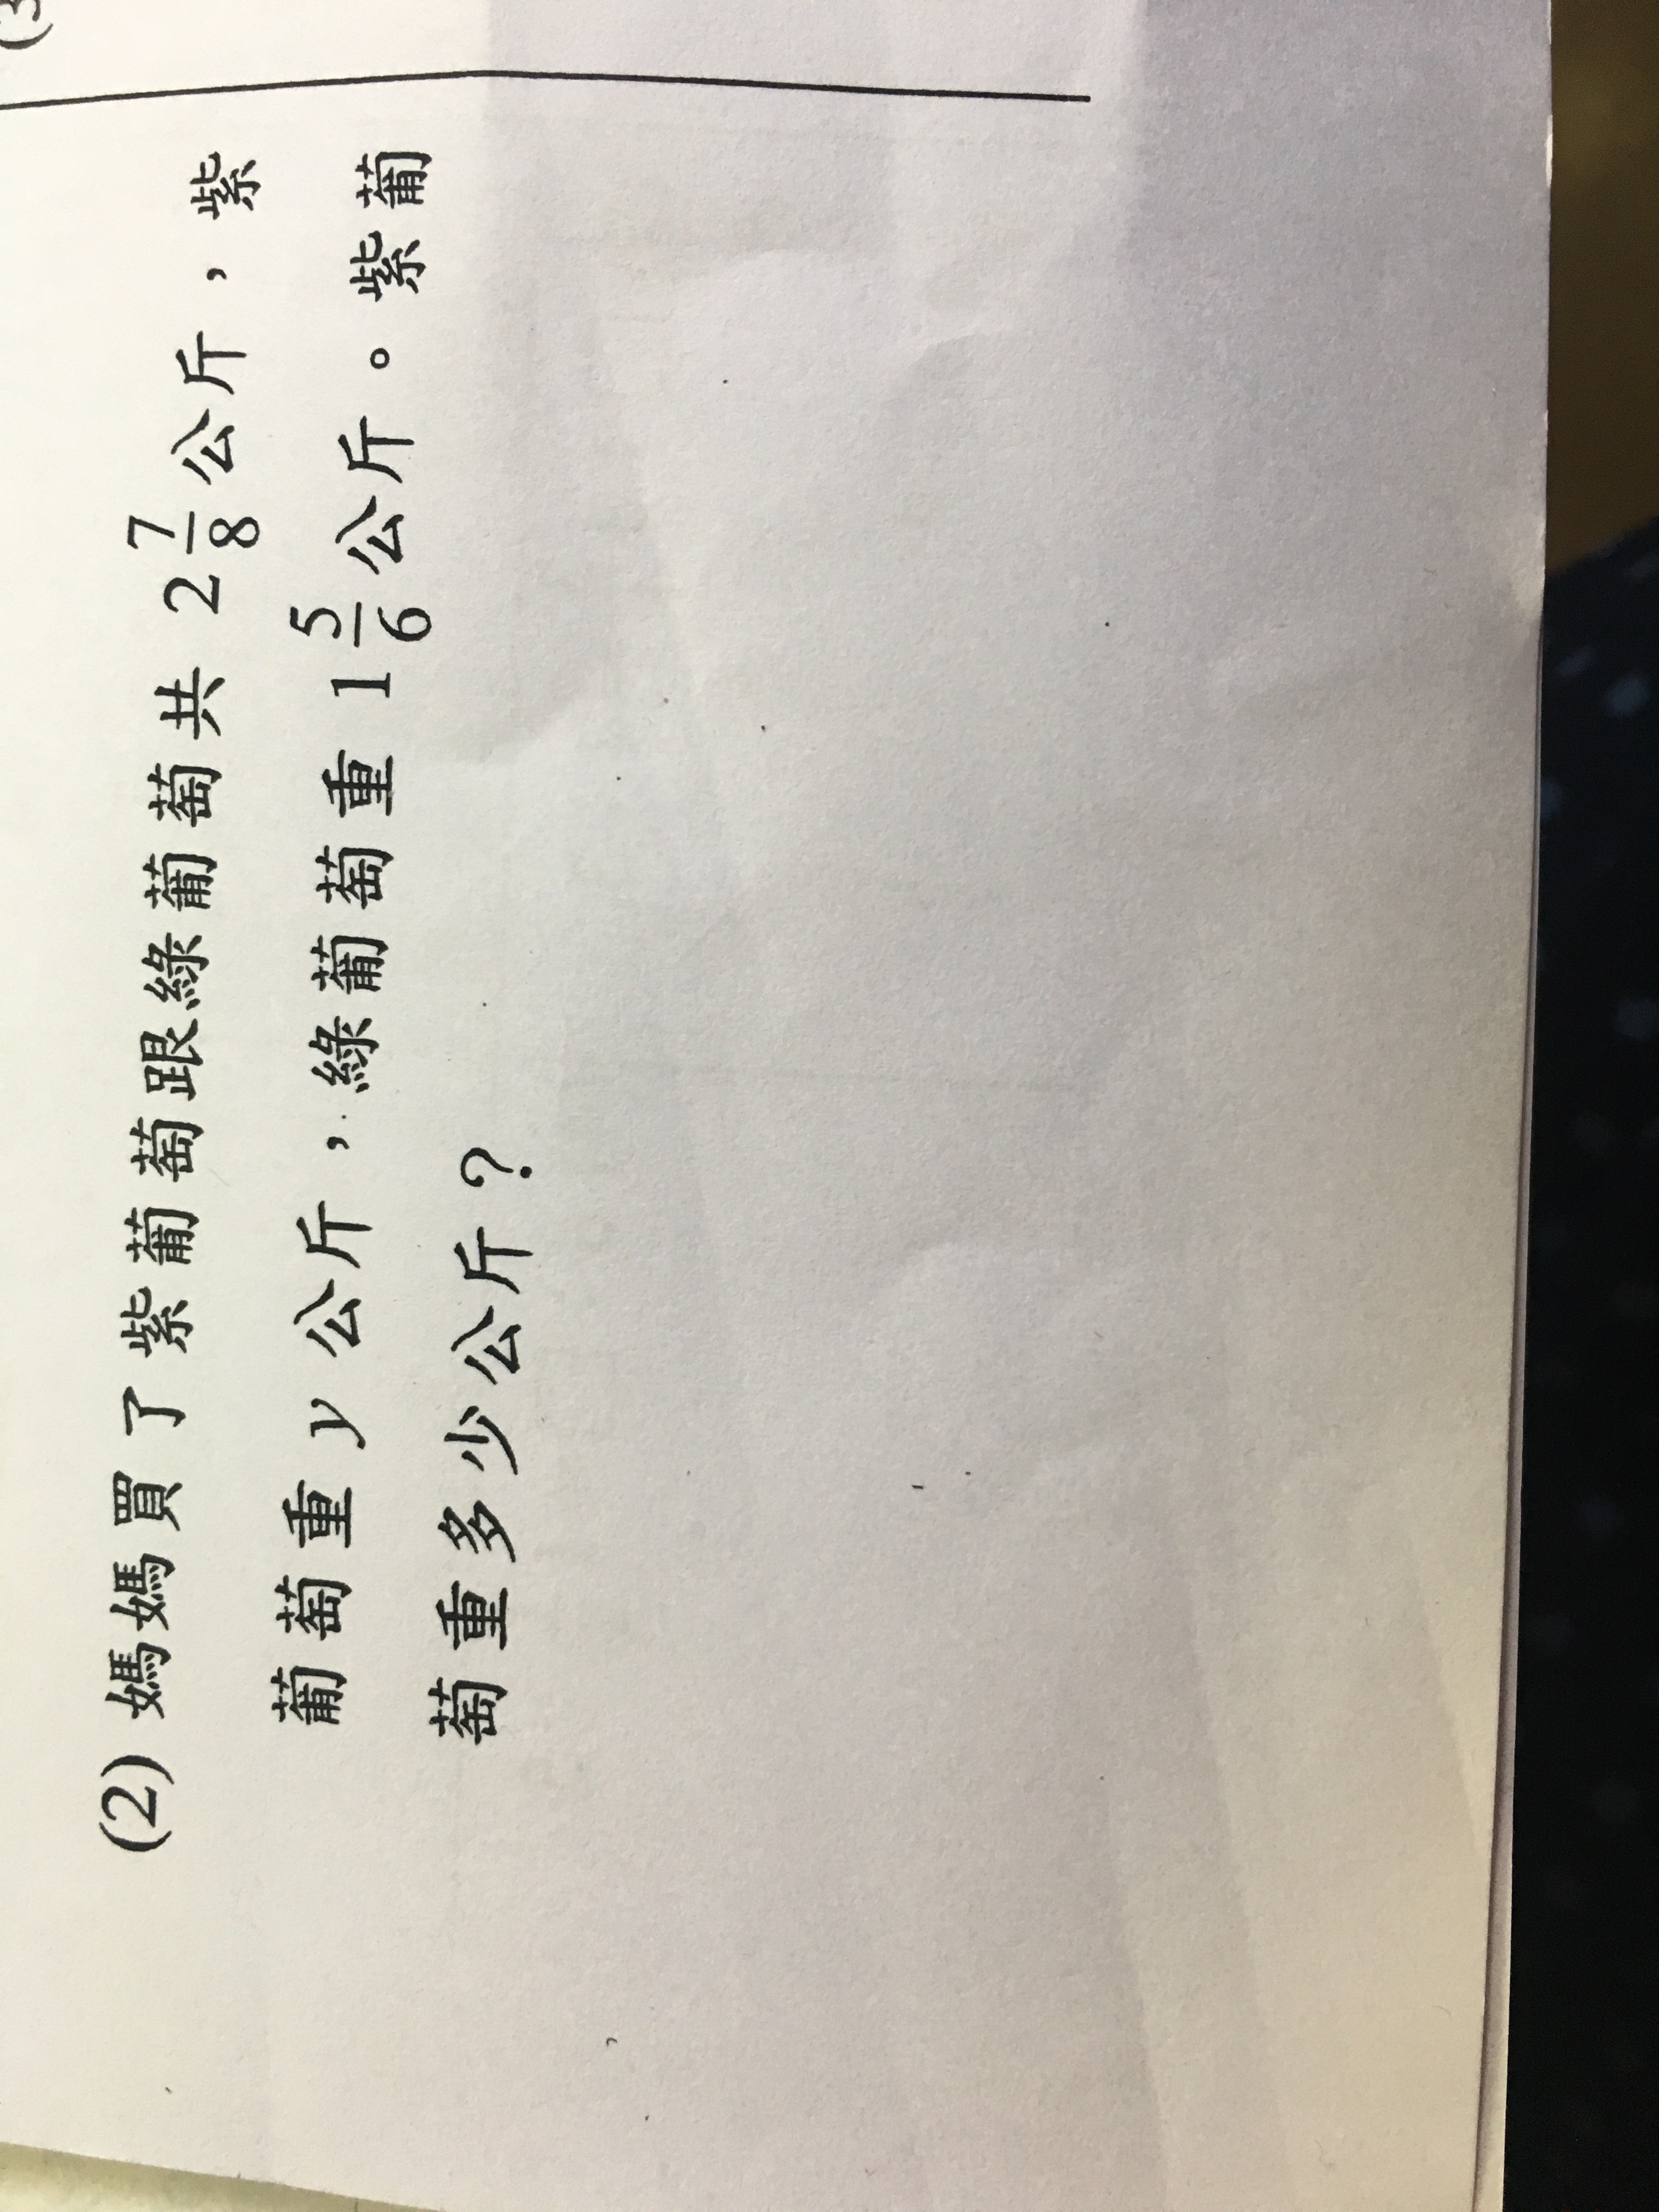 (2) 媽媽買了紫葡萄跟綠葡萄共 2 7/8 公斤，紫
葡萄重 y 公斤，綠葡萄重 1 5/6 公斤。紫葡
萄重多少公斤？